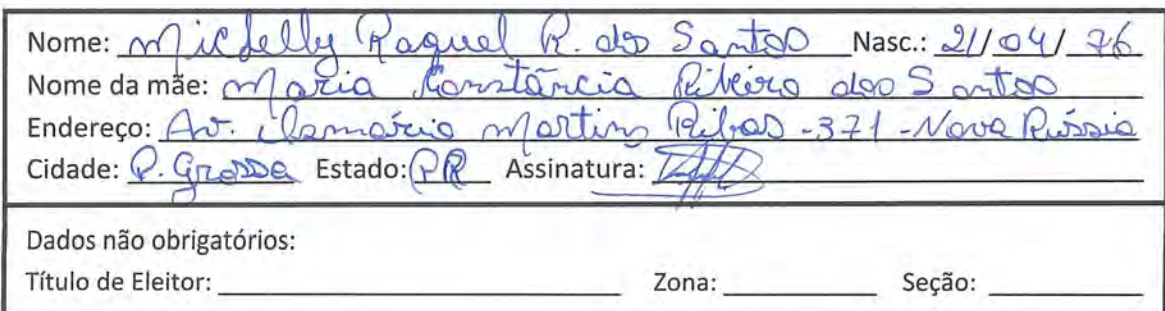 Nome: Michelly Raquel R. dos Santos Nasc.: 21/04/76
Nome da mãe: Maria Constância Ribeiro dos Santos
Endereço: Av. Martins Ribas - 371 - Nova Rússia
Cidade: P. Grossa Estado: PR Assinatura:
Dados não obrigatórios:
Título de Eleitor: Zona: Seção: